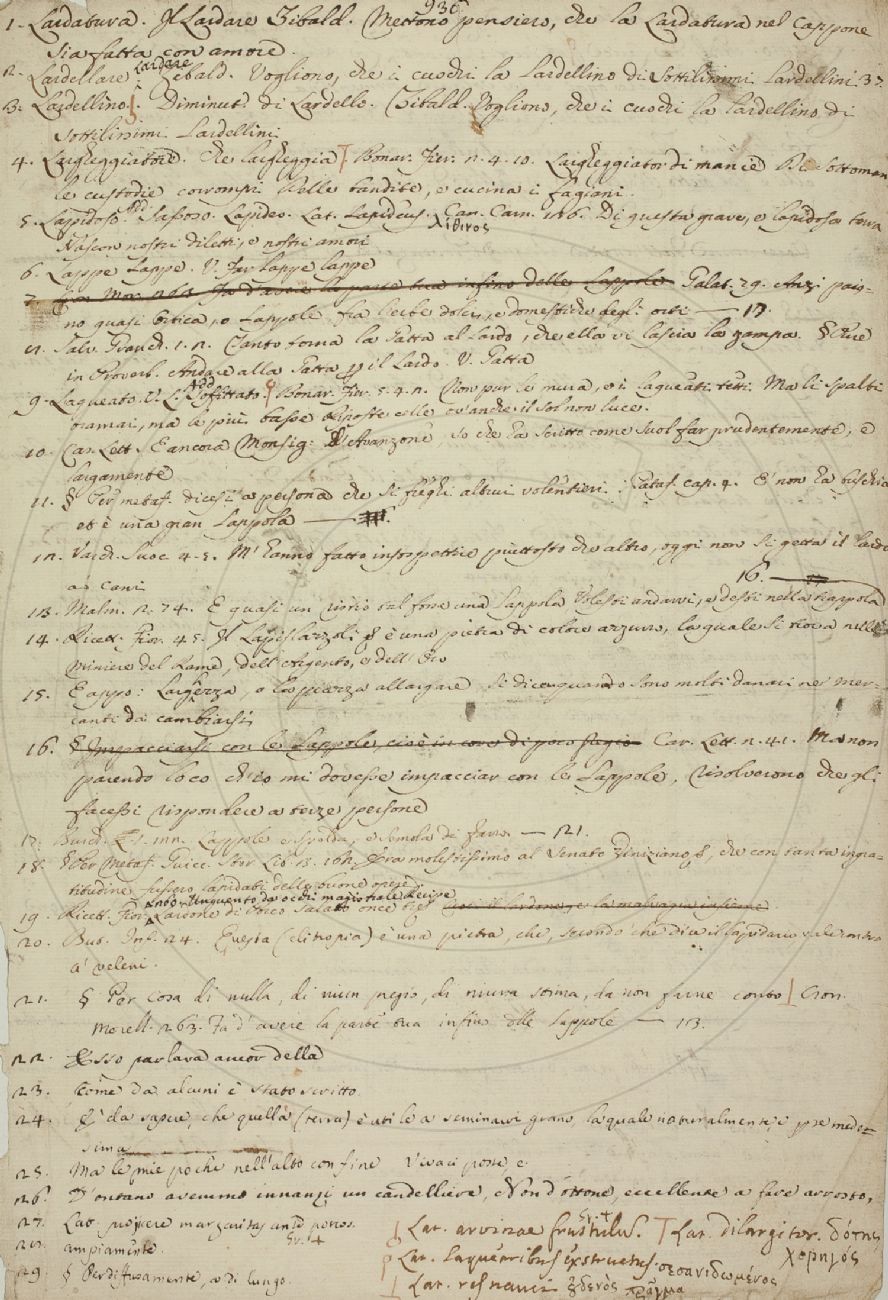 930
1. Lardatura. Il Lardare Zibald. Mettono pensiero, che la Lardatura nel Cappone
sia fatta con amore.
Lardare
2. Lardellare Zebald. Vogliono, che i cuochi la Lardellino di Sottilissimi Lardellini 3.
3. Lardellino. Diminut. di Lardello. Zibald. Vogliono, che i cuochi la lardellino di
sottilissimi Lardellini
4. Largheggiatore. Che largheggia Bonar. Fier. n. 4. 10. Largheggiator di mancie
le custodie corrompi delle bandite, e cucina i fagiani.
5. Lapidoso. Add. Sassoso. Lapideo. Lat. Lapideus. Can. Carn. 116. Di questa grave, e lapidosa terra
λίθινος
Nascon nostri diletti, e nostri amori
6. Lappe Lappe. V. Far lappe lappe
7. infino delle Lappole Galat. 29. Anzi paiono
no quasi bitica, o Lappole fra l'erbe dolci, e domestiche degli orti — 17.
Salv. Granch. 1. 2. Tanto torna la Gatta al Lardo, che ella vi lascia la zampa. § Che
in Proverb. Andare alla Gatta p il Lardo. V. Gatta
9. Laqueato. V. L. Add. Soffittato. Bonar. Fier. 5. 4. 2. Non pur le mura, e i laqueati tetti. Ma li spalti
oramai, ma le più basse riposte celle ov'anche il Sol non luce.
10. Car. Lett. E ancora Monsig: d'Avanzone, so che ha scritto come suol far prudentemente, e
largamente
11. § Per metaf. dicesi a persona che si freghi altrui volentieri: Pataf. cap. 4. E' non ha buschia
et è una gran Lappola —
12. Varch. Suoc. 4. 5. M'hanno fatto insospettire piuttosto che altro, oggi non si getta il lardo
a' cani
16. —
13. Malm. 2. 74. E quasi un rischio tal fosse una Lappola Volesti andarvi, e desti nella trappola
14. Ricett. Fior. 45. Il Lapislazzoli è una pietra di colore azzurro, la quale si trova nelle
miniere del Rame, dell'Argento, e dell'Oro
15. E appo: Larghezza, o la piazza allargare si dice quando sono molti danari ne' Mer-
canti da cambiarsi
16. § Impacciarsi con le Lappole, cioè in cose di poco pregio Car. Lett. n. 41. Ma non
parendo loro ch'io mi dovesse impacciar con le Lappole, risolverono che gli
facessi rispondere a terze persone
17. Burch. Lappole e spolda, e semola di farro — 21.
18. § Per Metaf. Guicc. Stor. Lib. Era molestissimo al Senato Viniziano, che con tanta ingra-
titudine fussero lapidati delle buone opere
Unguento da occhi magistrale Recipe
19. Ricett. Fior. Lardone di Porco Salato once tre cuoci il lardone, e la malvagia insieme
20. But. Inf. 24. Questa (elitropia) è una pietra, che, secondo che dice il Lapidario vale contro
a' veleni.
21. § Per Cosa di nulla, di niun pregio, di niuna stima, da non farne conto Cron.
Morell. 263. Fa d'avere la parte tua infino delle Lappole — 13.
22. Esso parlava ancor della
23. Come da alcuni è stato scritto
24. È da sapere, che quella (terra) è utile a seminarvi grano, la quale naturalmente è p se mede-
sima
25. Ma le mie poche nell'alto confine Vivaci poste, e
26. D'ontano avemmo innanzi un candelliere, E non d'ottone, eccellente a fare arrosto,
27. Lat. projicere margaritas ante porcos.
28. ampiamente. Gr. 4
29. § Per diffusamente, o di lungo.
Lat. arvinae frustulus. Gr. 4 Lat. dilargitor. δότης
χορηγός
Lat. laquearibus exstructus. σεσανιδωμένος
Lat. res nauci οὐδενὸς πρᾶγμα